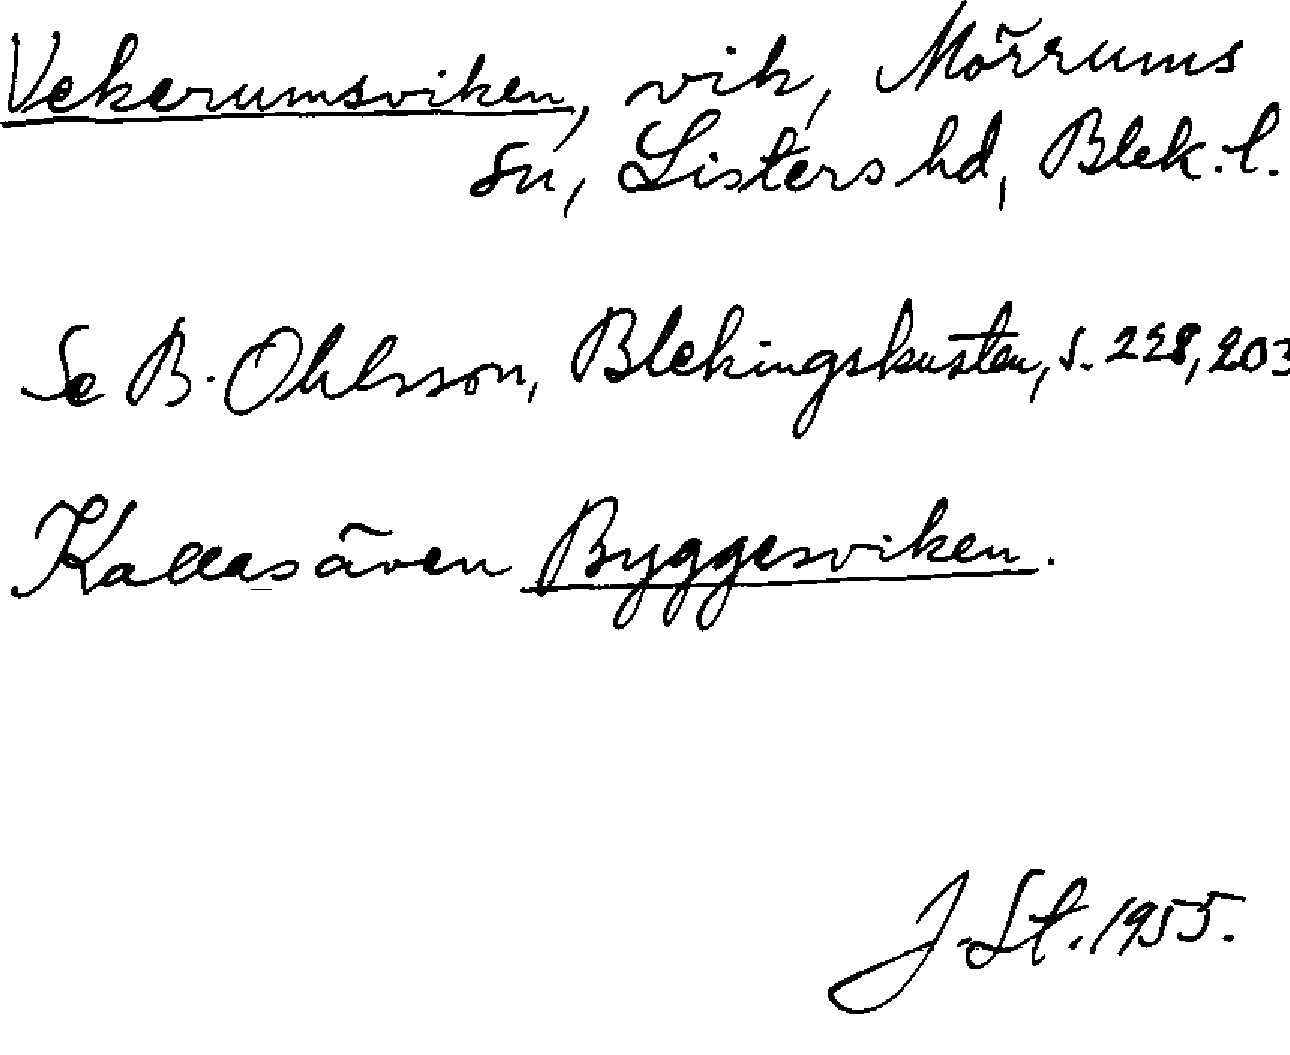 Vekerumsviken, vik, Mörrums
sn, Listers hd, Blek. l.
Se B. Ohlsson, Blekingskusten, s. 228, 203
Kallas även Byggesviken.
J. St. 1955.